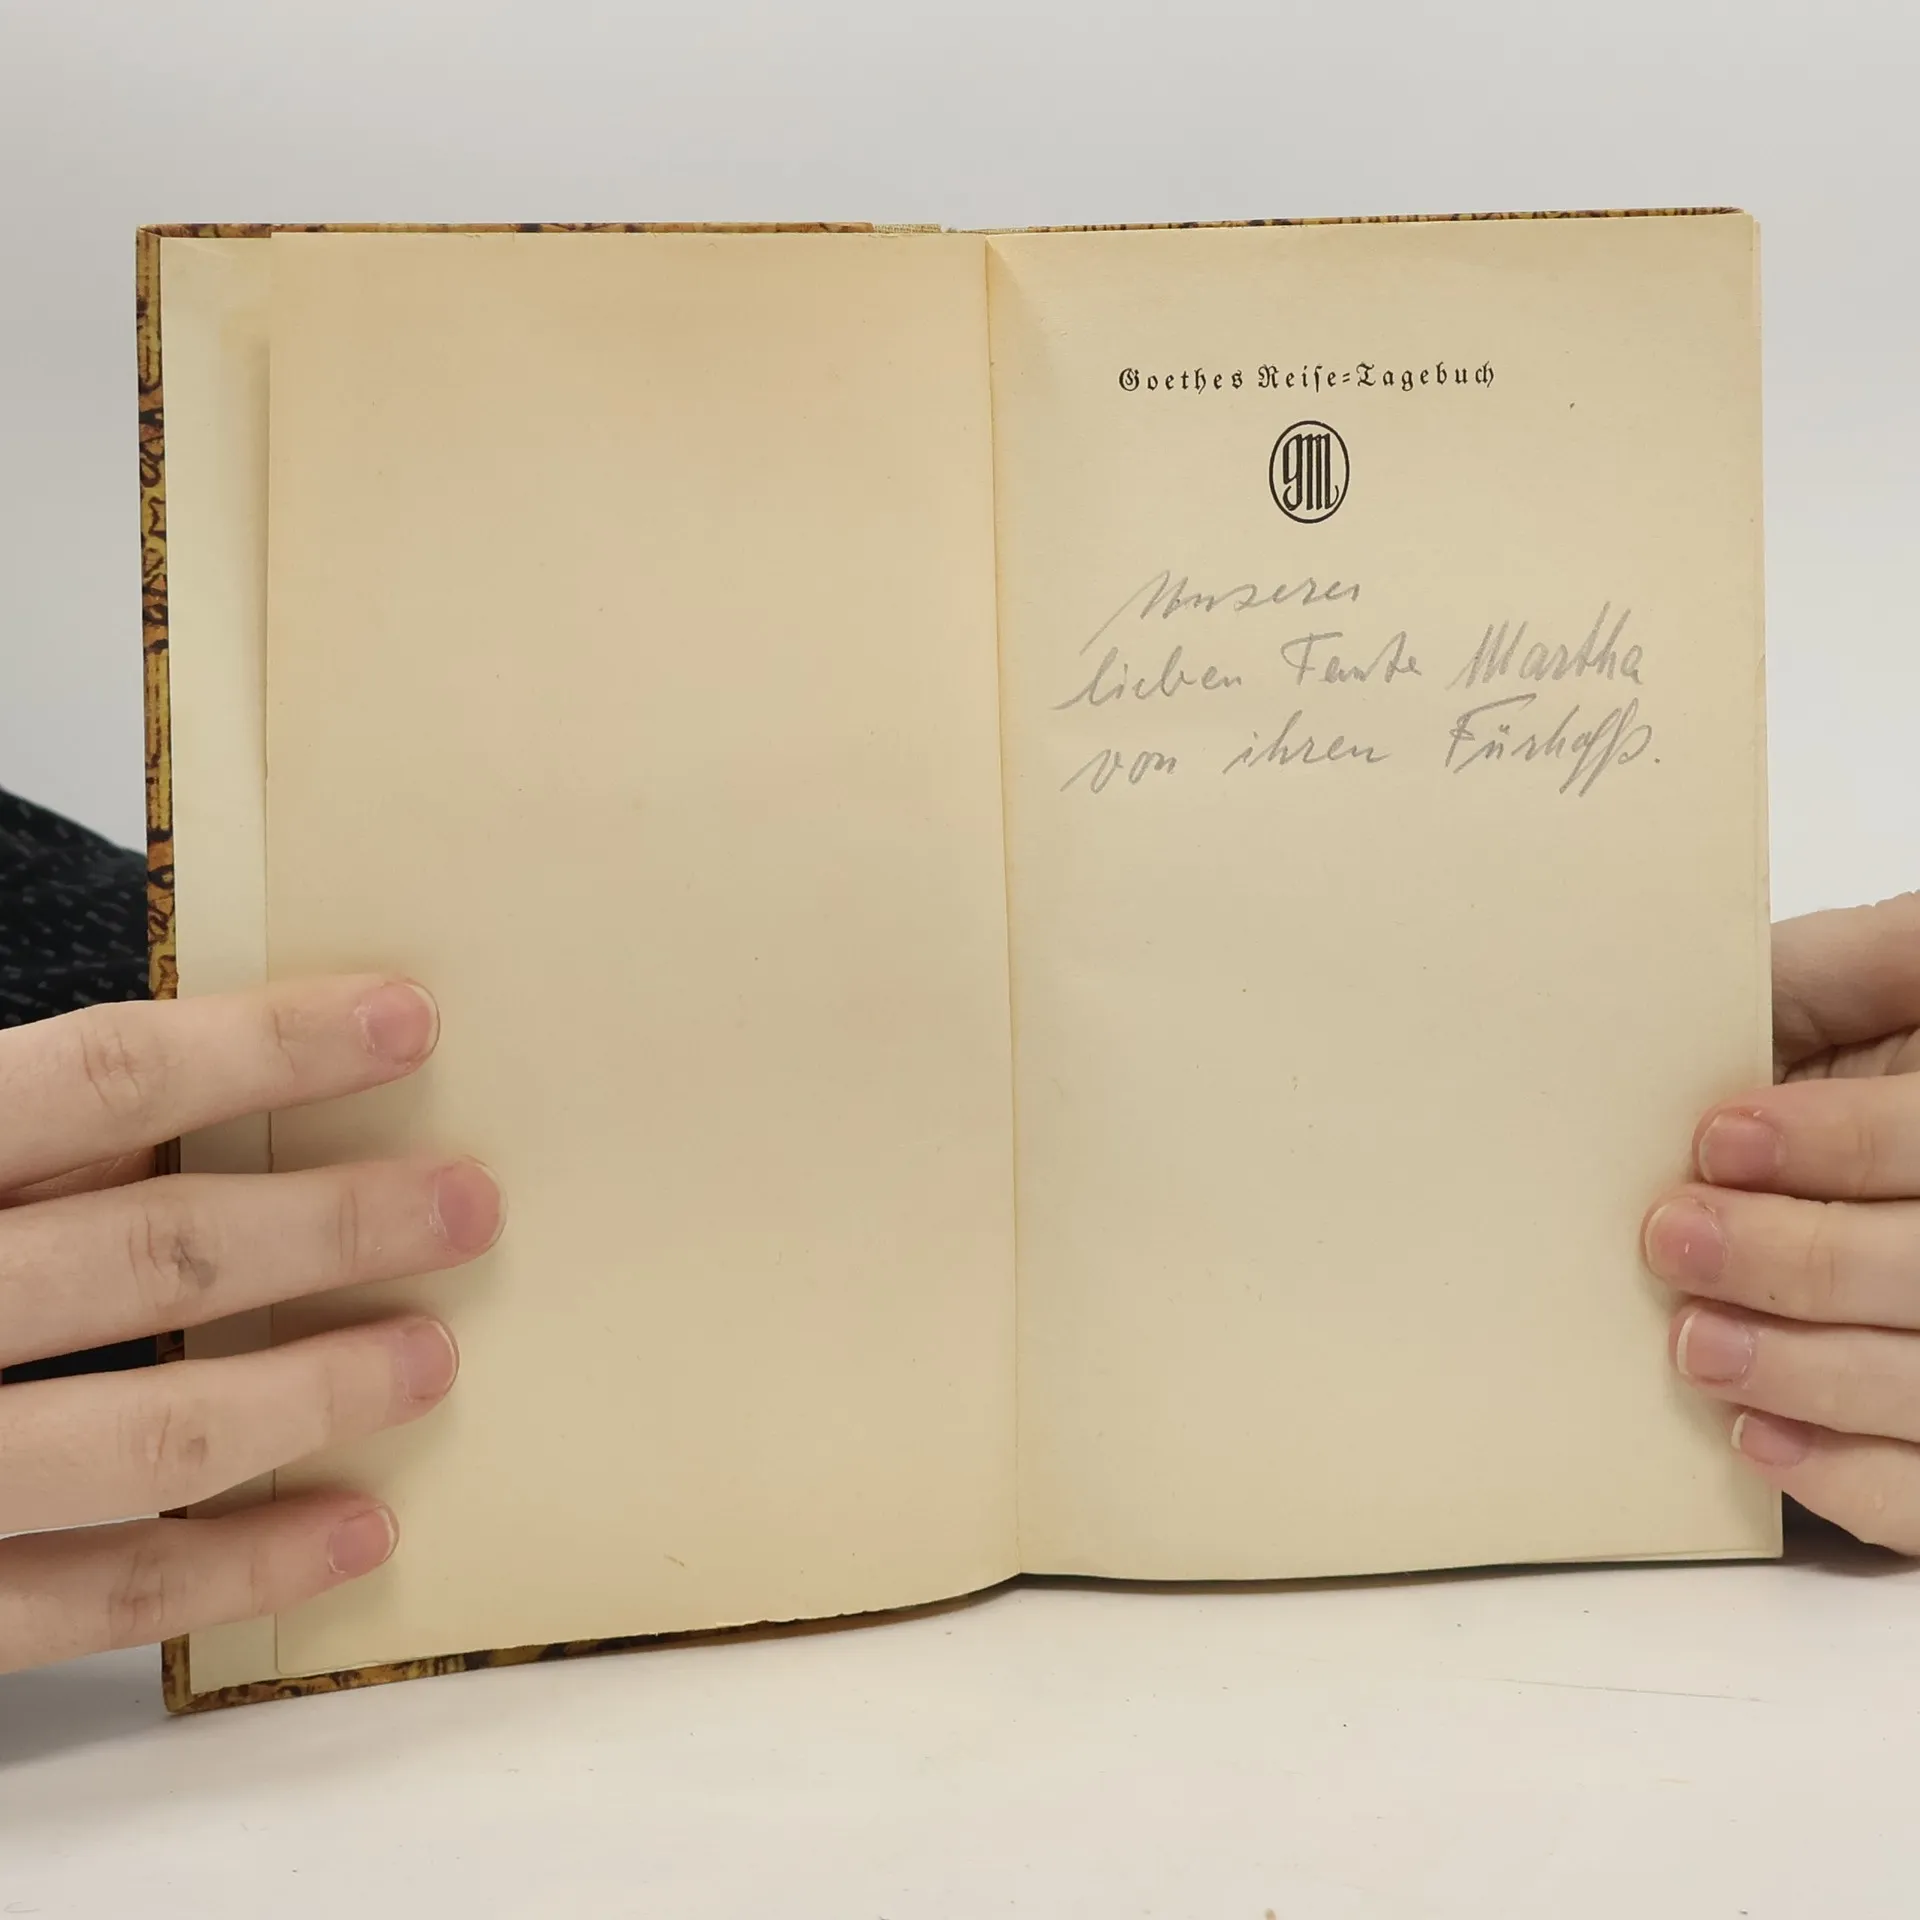 Goethes Reiſe-Tagebuch
GM
Unserer
lieben Tante Martha
von ihren